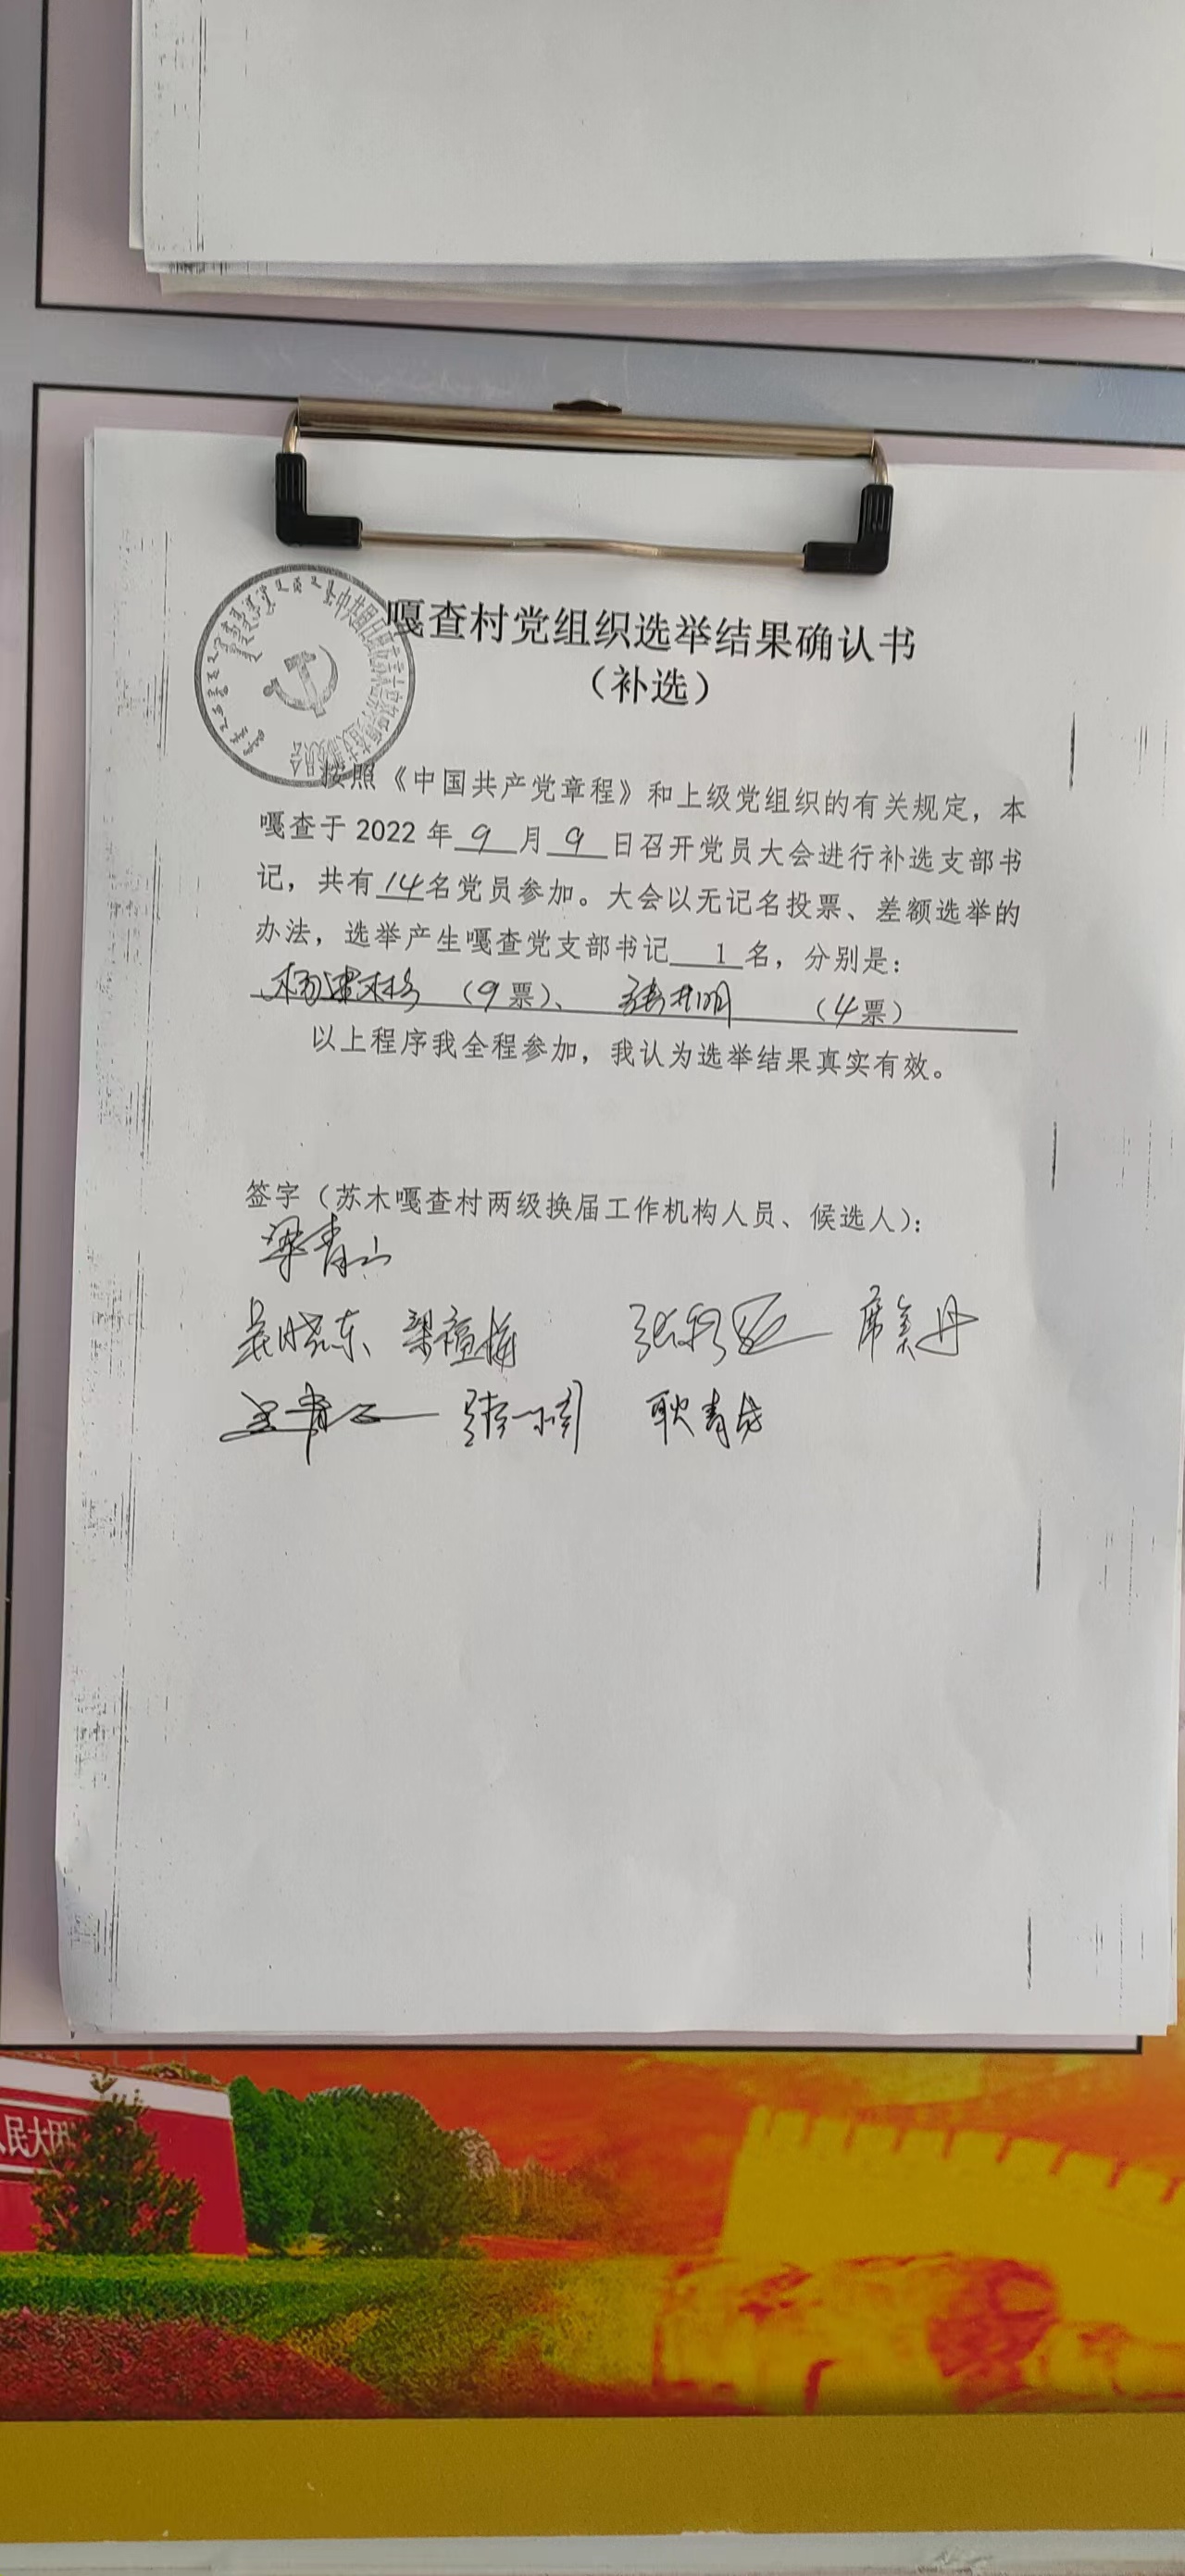 嘎查村党组织选举结果确认书
（补选）
按照《中国共产党章程》和上级党组织的有关规定，本
嘎查于 2022 年 9 月 9 日召开党员大会进行补选支部书
记，共有 14 名党员参加。大会以无记名投票、差额选举的
办法，选举产生嘎查党支部书记 1 名，分别是：
（9 票）、 （4 票）
以上程序我全程参加，我认为选举结果真实有效。
签字（苏木嘎查村两级换届工作机构人员、候选人）：
梁青山
吴晓东、梁福梅 席美丹
耿青成
人民大团